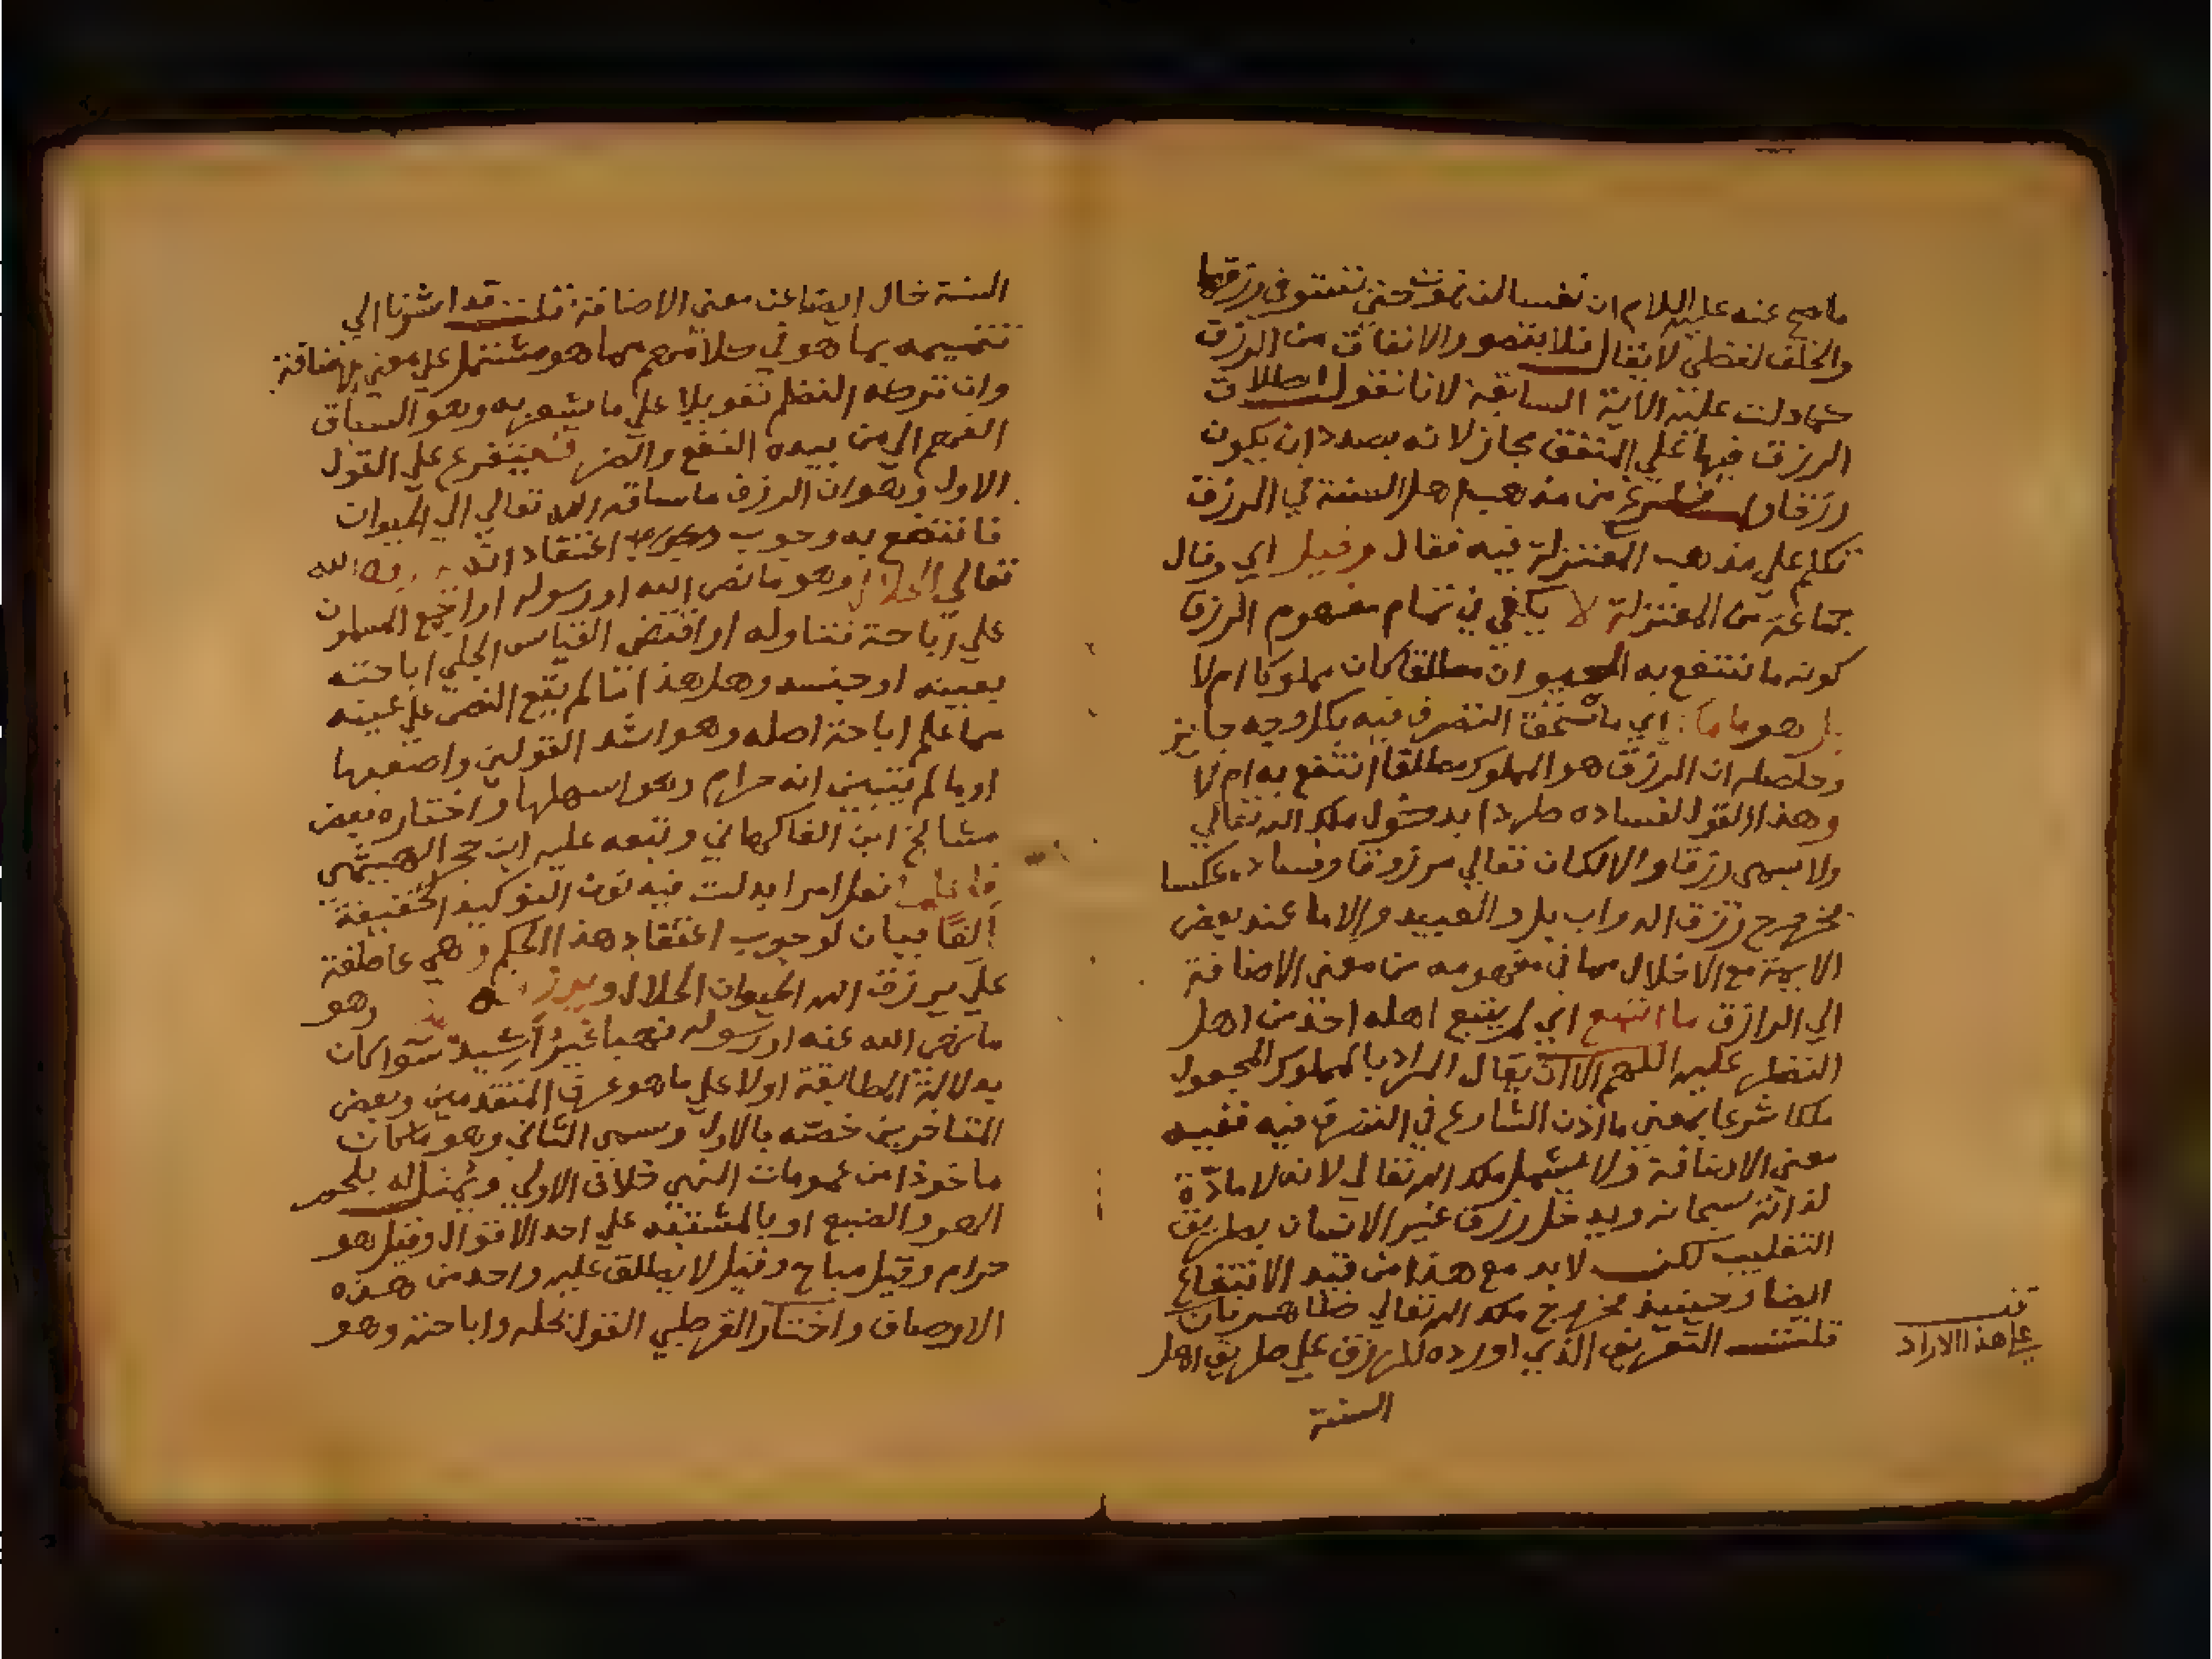 ما صح عنه عليه اللام ان نفسا لن تموت حتى تستوفي رزقها
والخلف لفظي لا يقال فلا يتصور الانفاق من الرزق
كما دلت عليه الآية السابقة لانا نقول اطلاق
الرزق فيها علي المنفق مجاز لانه بصدد ان يكون
رزقا ولما فرغ من مذهب اهل السنة في الرزق
تكلم علي مذهب المعتزلة فيه فقال وقيل اي وقال
جماعة من المعتزلة لا يكفي في تمام مفهوم الرزق
كونه ما ينتفع به الحيوان مطلقا كان مملوكا ام لا
بل هو ما اي ما استحق التصرف فيه بكل وجه جايز
وحاصله ان الرزق هو المملوك مطلقا انتفع به ام لا
وهذا القول لفساده طردا بدخول ملك الله تعالي
ولا يسمى رزقا والا لكان تعالي مرزوقا وفساده عكسا
بخروج رزق الدواب بل والعبيد والاما عند بعض
الايمة مع الاخلال بما في مفهومه من معنى الاضافة
الي الرازق ما اتبع اي لم يتبع اهله احد من اهل
النظر عليه اللهم الا ان يقال المراد بالمملوك المجعول
ملكا شرعا بمعني ما اذن الشارع في التصرف فيه ففيه
معني الاضافة ولا يشمل ملك الله تعالي لانه لا مادة
لذاته سبحانه ويدخل رزق غير الانسان بطريق
التغليب لكن لا بد مع هذا من قيد الانتفاع
ايضا وحينيذ بخروج ملك الله تعالي ظاهر فان
قلت التعريف الذي اورده للرزق علي طريق اهل
السنة
علي هذا الايراد
السنة خال ايضا عن معنى الاضافة قلت قد اشرنا الي
تتميمه بما هو في كلامهم مما هو مشتمل علي معني الاضافة
وان تركه النظم تعويلا علي ما يشعر به وهو السياق
الي من بيده النفع والضر فيتفرع علي القول
الاول وهو ان الرزق ما ساقه الله تعالي الي الحيوان
فانتفع به وجوب اعتقاد الله
تعالي الحلال وهو ما نص الله او رسوله او اجمع المسلمون
علي اباحة تناوله او اقتضى القياس الجلي اباحته
بعينه او جنسه وهل هذا لم يقع النص علي عينه
مما علم اباحة اصله وهو اشد القولين واصعبها
او ما لم يتبين انه حرام وهو اسهلها واختاره بعض
مشايخ ابن الفاكهاني وتبعه عليه ابن حجر الهيتمي
فعل امر ابدلت فيه نون التوكيد الخفيفة
الفا بيان لوجوب اعتقاد هذا الحكم وهي عاطفة
علي يرزق الله الحيوان الحلال ويرزق وهو
ما نهى الله عنه او رسوله نهيا غير ارشيد سوا كان
بدلالة المطابقة اولا علي ما هو عرف المتقدمين وبعض
المتاخرين خصه بالاول وسمى الثاني وهو ما كان
ماخوذا من عمومات النهي خلاف الاولي ويمثل له بلحم
الهر والضبع او بالمشتبه علي احد الاقوال وقيل هو
حرام وقيل مباح وقيل لا يطلق عليه واحد من هذه
الاوصاف واختار القرطبي القول بحله واباحته وهو